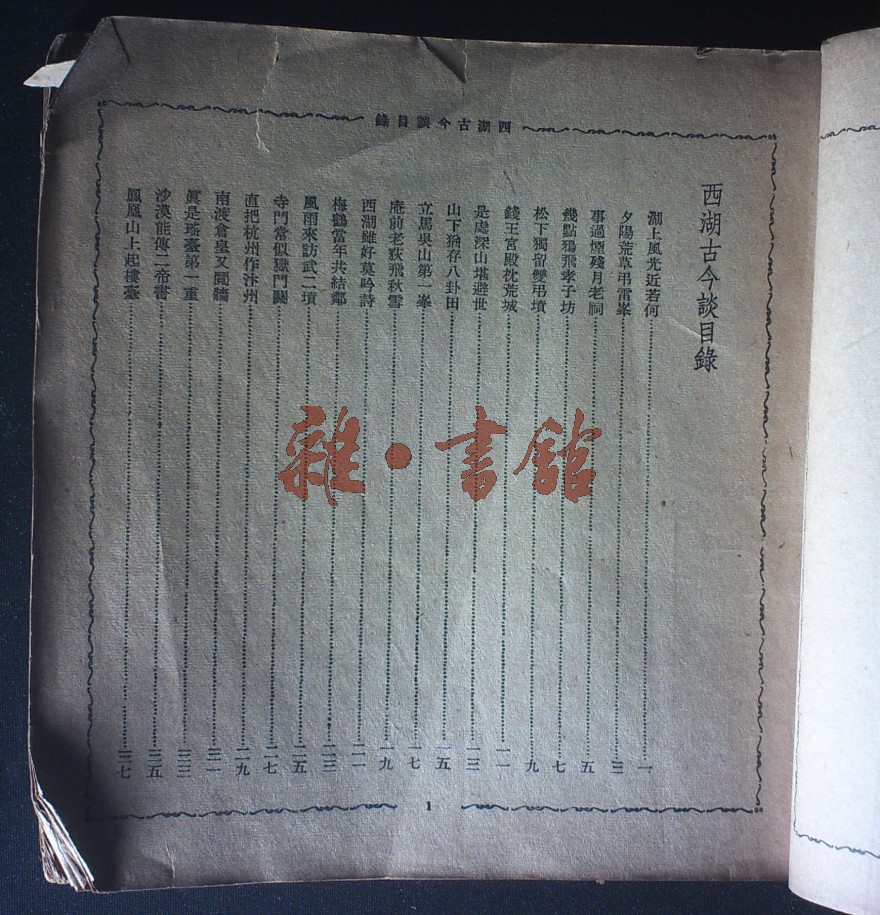 西湖古今談目錄
西湖古今談目錄
湖上風光近若何……一
夕陽荒草弔雷峯……三
事過煙殘月老祠……五
幾點鴉飛孝子坊……七
松下獨留雙弔墳……九
錢王宮殿枕荒城……一一
是處深山堪避世……一三
山下猶存八卦田……一五
立馬吳山第一峯……一七
庵前老荻飛秋雪……一九
西湖雖好莫吟詩……二一
梅鶴當年共結鄰……二三
風雨來訪武二墳……二五
寺門當似獄門關……二七
直把杭州作汴州……二九
南渡倉皇又鬩牆……三一
眞是瑤臺第一重……三三
沙漠能傳二帝書……三五
鳳凰山上起樓臺……三七
1
雜·書館